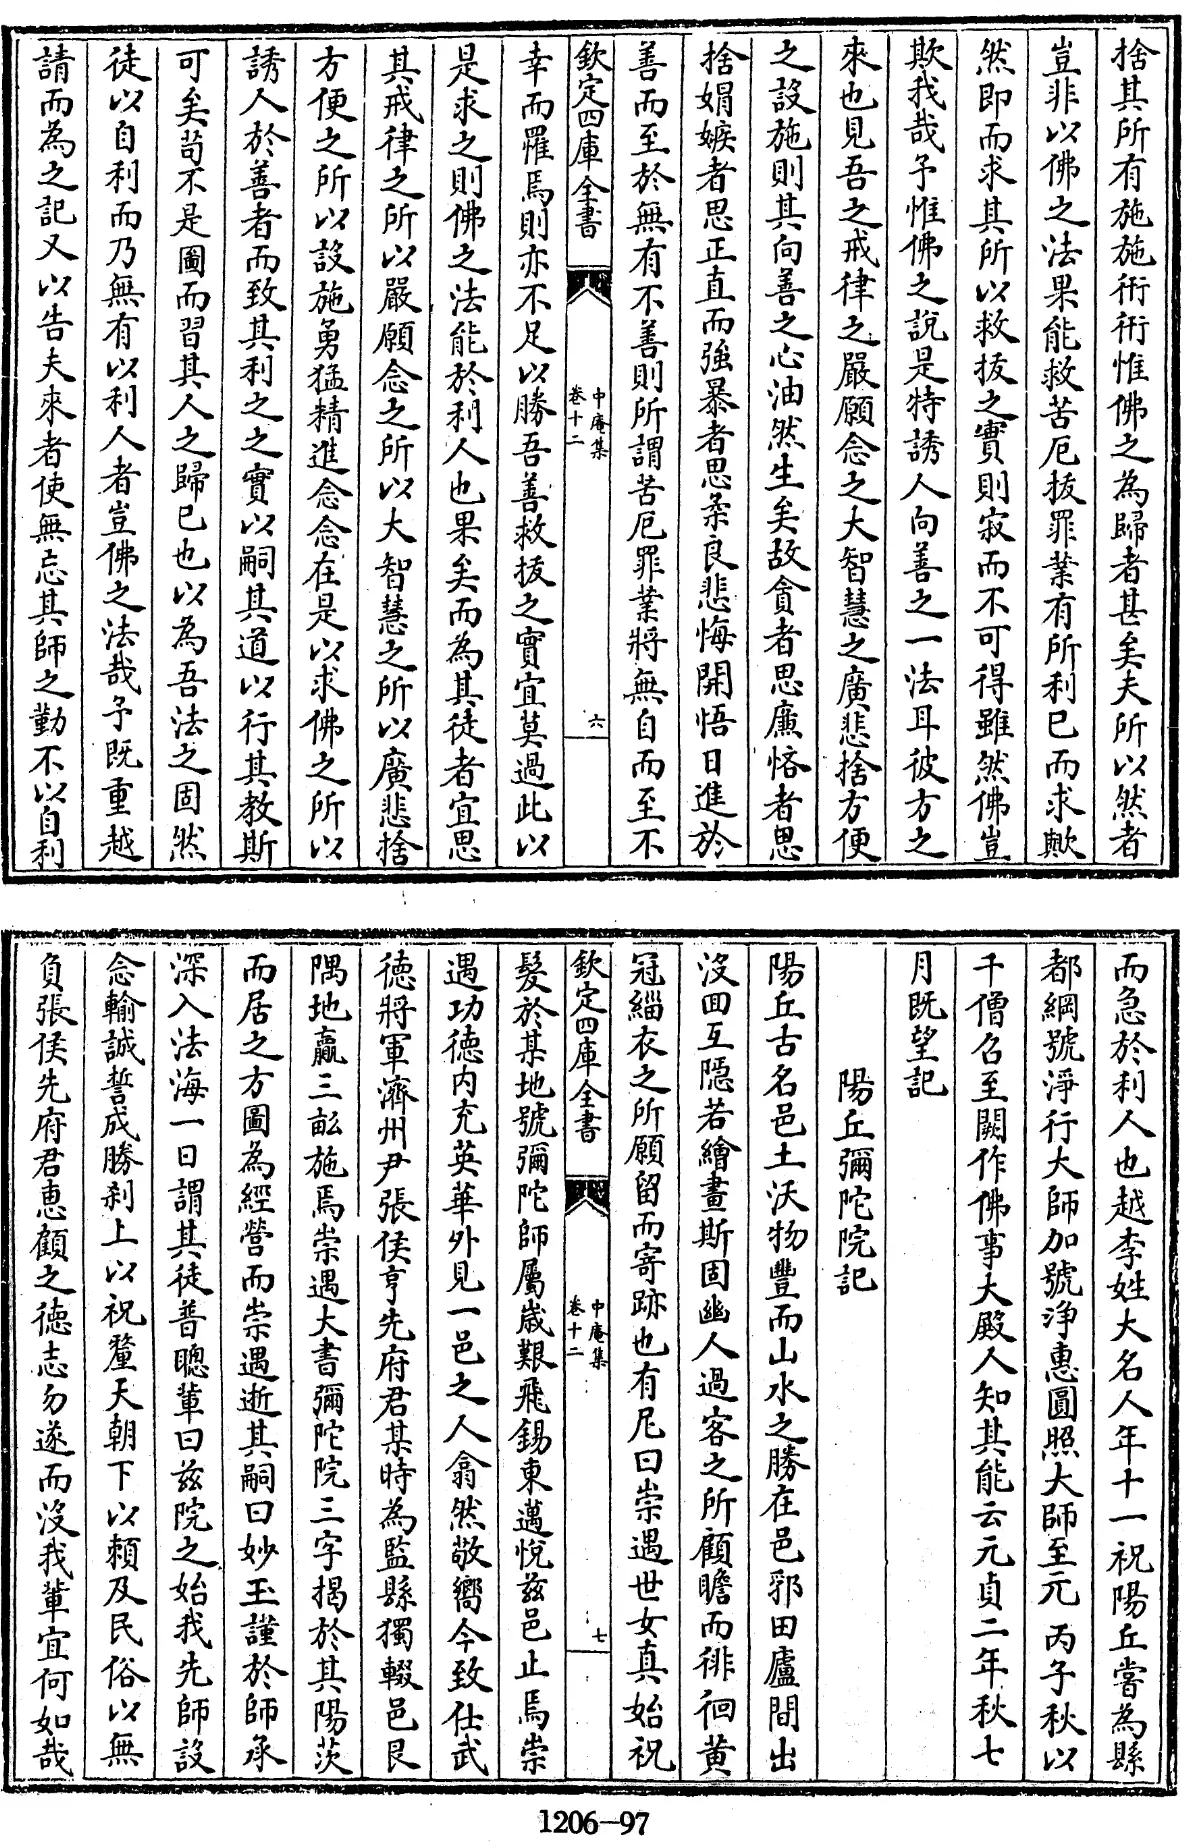 捨其所有施施衎衎惟佛之為歸者甚矣夫所以然者
豈非以佛之法果能救苦厄抜罪業有所利已而求歟
然即而求其所以救抜之實則寂而不可得雖然佛豈
欺我哉予惟佛之說是特誘人向善之一法耳彼方之
來也見吾之戒律之嚴願念之大智慧之廣悲捨方便
之設施則其向善之心油然生矣故貪者思廉悋者思
捨娟嫉者思正直而強暴者思柔良悲悔開悟日進於
善而至於無有不善則所謂苦厄罪業將無自而至不
欽定四庫全書
中庵集
卷十二
六
幸而罹焉則亦不足以勝吾善救抜之實宜莫過此以
是求之則佛之法能於利人也果矣而為其徒者宜思
其戒律之所以嚴願念之所以大智慧之所以廣悲捨
方便之所以設施勇猛精進念念在是以求佛之所以
誘人於善者而致其利之之實以嗣其道以行其教斯
可矣茍不是圖而習其人之歸已也以為吾法之固然
徒以自利而乃無有以利人者豈佛之法哉予既重越
請而為之記又以告夫來者使無忘其師之勤不以自利
而急於利人也越李姓大名人年十一祝陽丘嘗為縣
都綱號淨行大師加號淨惠圓照大師至元丙子秋以
千僧召至闕作佛事大殿人知其能云元貞二年秋七
月既望記
陽丘彌陀院記
陽丘古名邑土沃物豐而山水之勝在邑郛田廬間出
沒回互隱若繪畫斯固幽人過客之所顧瞻而徘徊黄
冠緇衣之所願留而寄跡也有尼曰崇遇世女真始祝
欽定四庫全書
中庵集
卷十二
七
髮於某地號彌陀師屬嵗艱飛錫東邁悅兹邑止焉崇
遇功德内充英華外見一邑之人翕然敬嚮今致仕武
德將軍濟州尹張侯亨先府君某時為監縣獨輟邑艮
隅地贏三畝施焉崇遇大書彌陀院三字掲於其陽茨
而居之方圖為經營而崇遇逝其嗣曰妙玉謹於師承
深入法海一日謂其徒普聰軰曰兹院之始我先師設
念輸誠誓成勝剎上以祝釐天朝下以頼及民俗以無
負張侯先府君恵顧之德志勿遂而沒我軰宜何如哉
1206-97